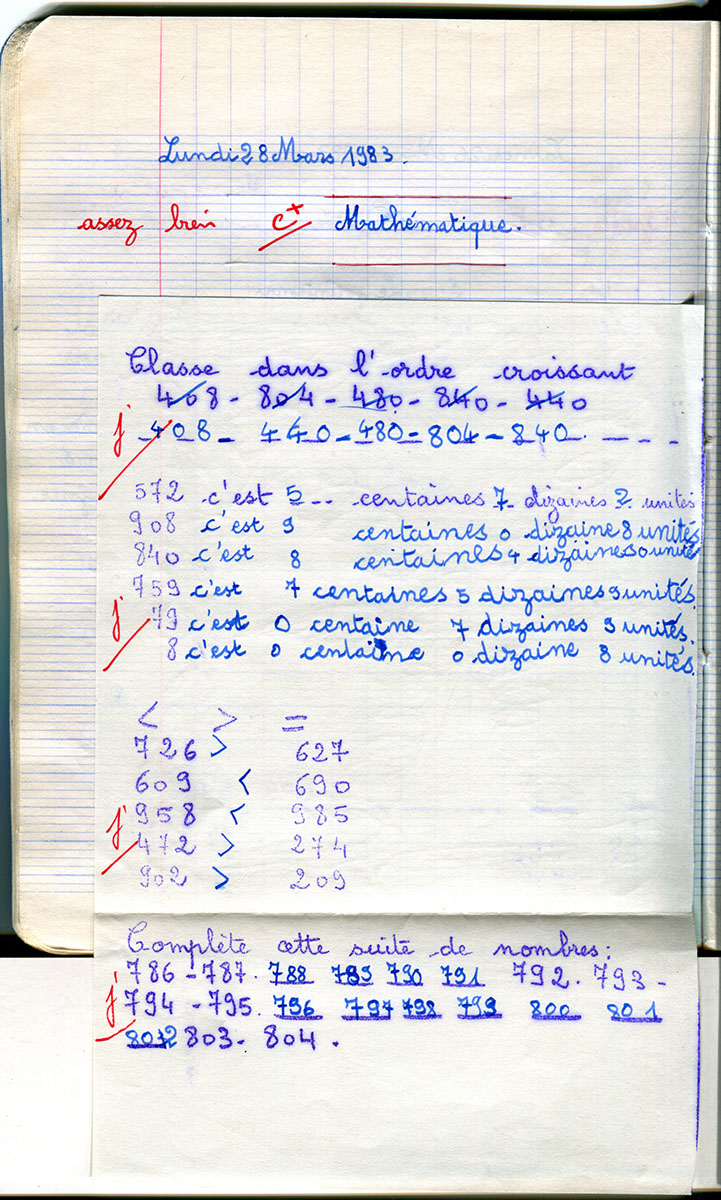 Lundi 28 Mars 1983.
assez bien C+ Mathématique.
Classe dans l'ordre croissant
408 - 804 - 480 - 840 - 440
j 408 - 440 - 480 - 804 - 840 - - - -
572 c'est 5 .. centaines 7 dizaines 2 unités
908 c'est 9 centaines 0 dizaine 8 unités
840 c'est 8 centaines 4 dizaines 0 unité
759 c'est 7 centaines 5 dizaines 9 unités.
j 79 c'est 0 centaine 7 dizaines 9 unités.
8 c'est 0 centaine 0 dizaine 8 unités.
< > =
726 > 627
609 < 690
j 958 < 985
472 > 274
902 > 209
Complète cette suite de nombres:
786 - 787. 788 789 790 791 792. 793 -
j 794 - 795. 796 797 798 799 800 801
802 803 - 804.